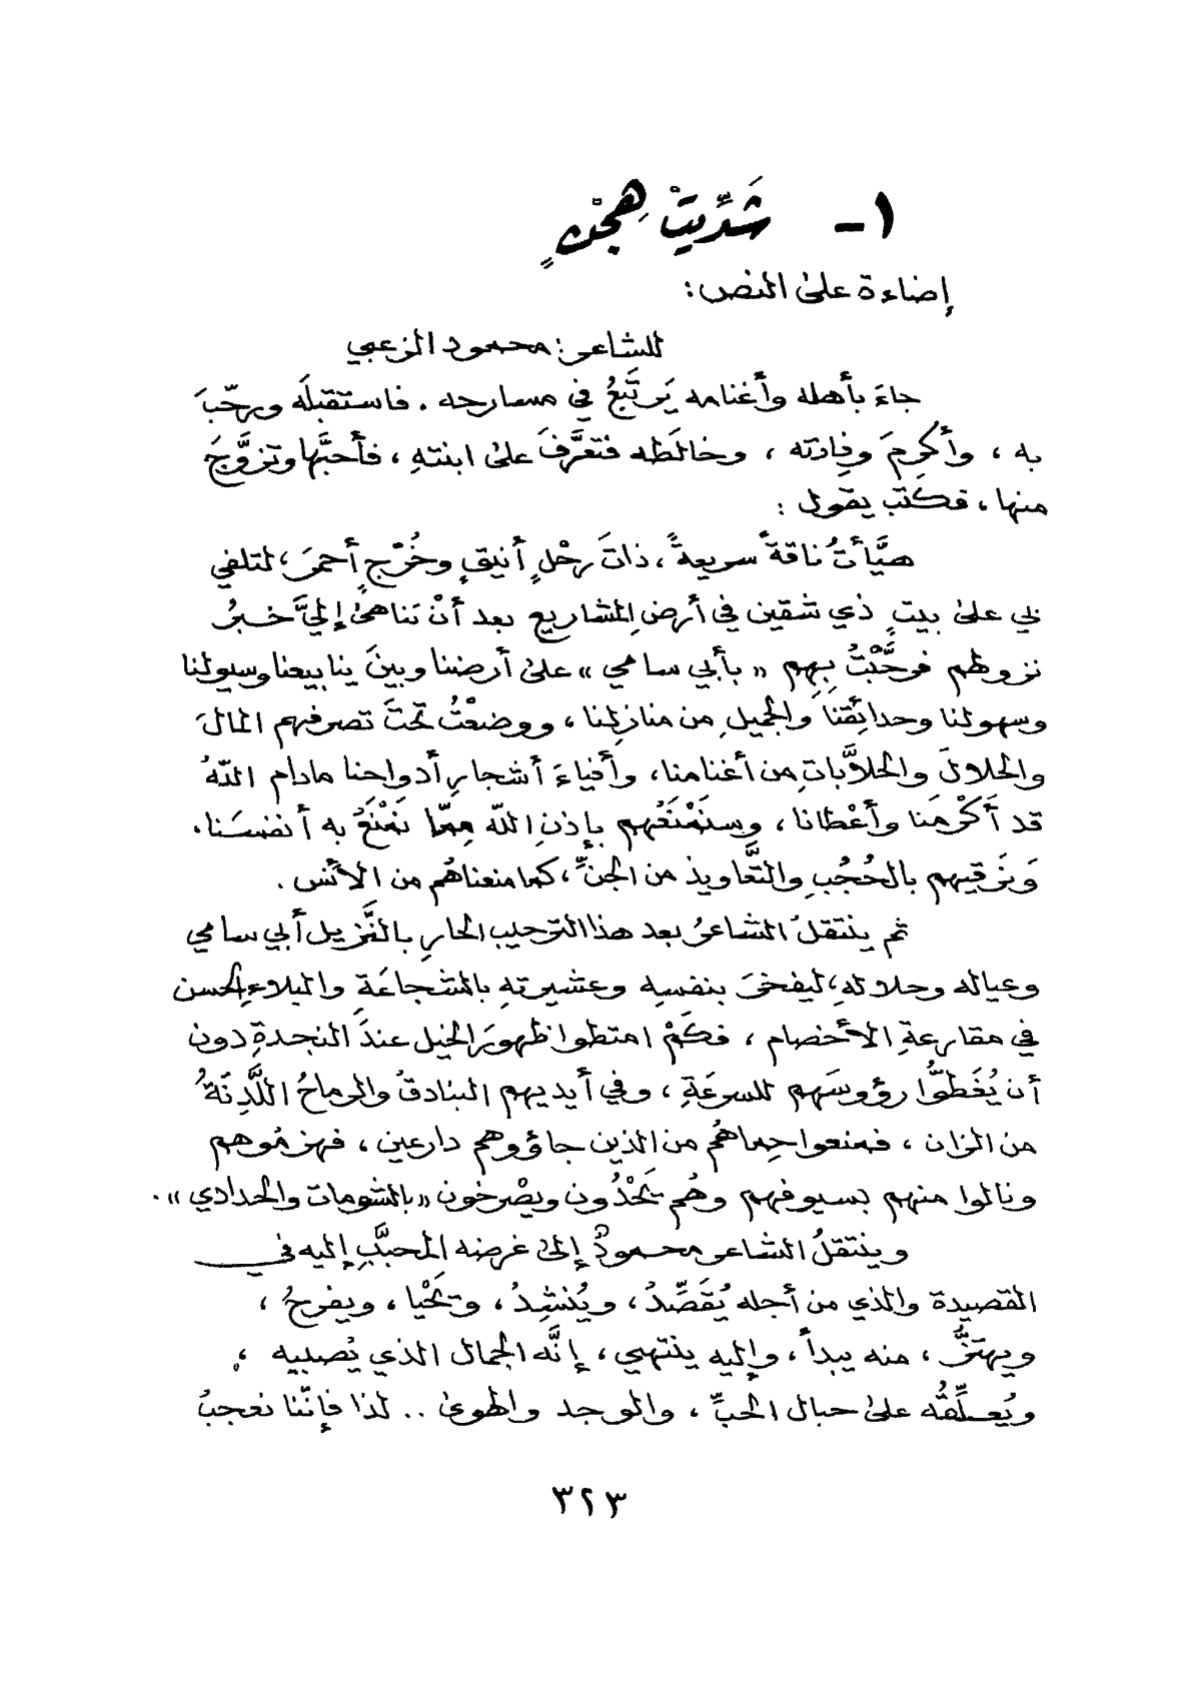 ١- شَدِّيتْ هِجْنٍ
إضاءة على النص:
للشاعر: محمود الزعبي
جاءَ بأهله وأغنامه يَرتَبعُ في مسارحه . فاستقبلَه ورحّبَ
به ، وأكرمَ وِفادته ، وخالَطه فتعرَّفَ على ابنتهِ ، فأحبَّها وتزوَّجَ
منها ، فكتَب يقول :
هيَّأتُ ناقةً سريعةً ، ذاتَ رحْلٍ أنيقٍ وخُرْجٍ أحمرَ ، لتلفي
بي على بيتٍ ذي شقين في أرضِ المشاريع بعد أنْ تناهىٰ إليَّ خبرُ
نزولهم فرحَّبْتُ بِهِم « بأبي سامي » على أرضنا وبينَ ينابيعنا وسيولنا
وسهولنا وحدائقنا والجميلِ من منازلنا ، ووضعْتُ تحتَ تصرفهم المالَ
والحلالَ والحلاَّباتِ من أغنامنا ، وأفياءَ أشجارِ أدواحنا مادام اللّهُ
قد أَكْرمَنا وأعْطانا ، وسنَمْنَعُهم بإذنِ اللّه مِمّا نَمْنَعُ به أنفسَنا .
وَنَرقيهم بالحُجُبِ والتَّعاويذ من الجنِّ ، كما منعناهُم من الأنس .
ثم ينتقلُ الشاعرُ بعد هذا الترحيب الحارِ بالنَّزيل أبي سامي
وعياله وحلالهِ ، ليفخرَ بنفسه وعشيرتهِ بالشجاعَةِ والبلاءِ الحسن
في مقارعةِ الأخصام ، فكَمْ امتطوا ظهورَ الخيل عندَ النجدةِ دون
أن يُغَطوُّا رؤوسَهم للسرعَةِ ، وفي أيديهم البنادقُ والرماحُ اللَّدِنَةُ
من الزان ، فمنعوا حِماهُم من الذين جاؤوهم دارعين ، فهزموهم
ونالوا منهم بسيوفهم وهُم يَحْدُون ويصْرخون « بالشومات والحدادي » .
وينتقلُ الشاعر محمودٌ إلى غرضه المحبَّبِ إليه في
القصيدة والذي من أجله يُقَصِّدُ ، ويُنشِدُ ، وتَحْيا ، ويفرحُ ،
ويهتَزُّ ، منه يبدأ ، وإليه ينتهي ، إنَّه الجمال الذي يُصبيه ،
ويُعلِّقُه على حبال الحبِّ ، والوجد والهوىٰ .. لذا فإنّنا نعجبُ
٣٢٣